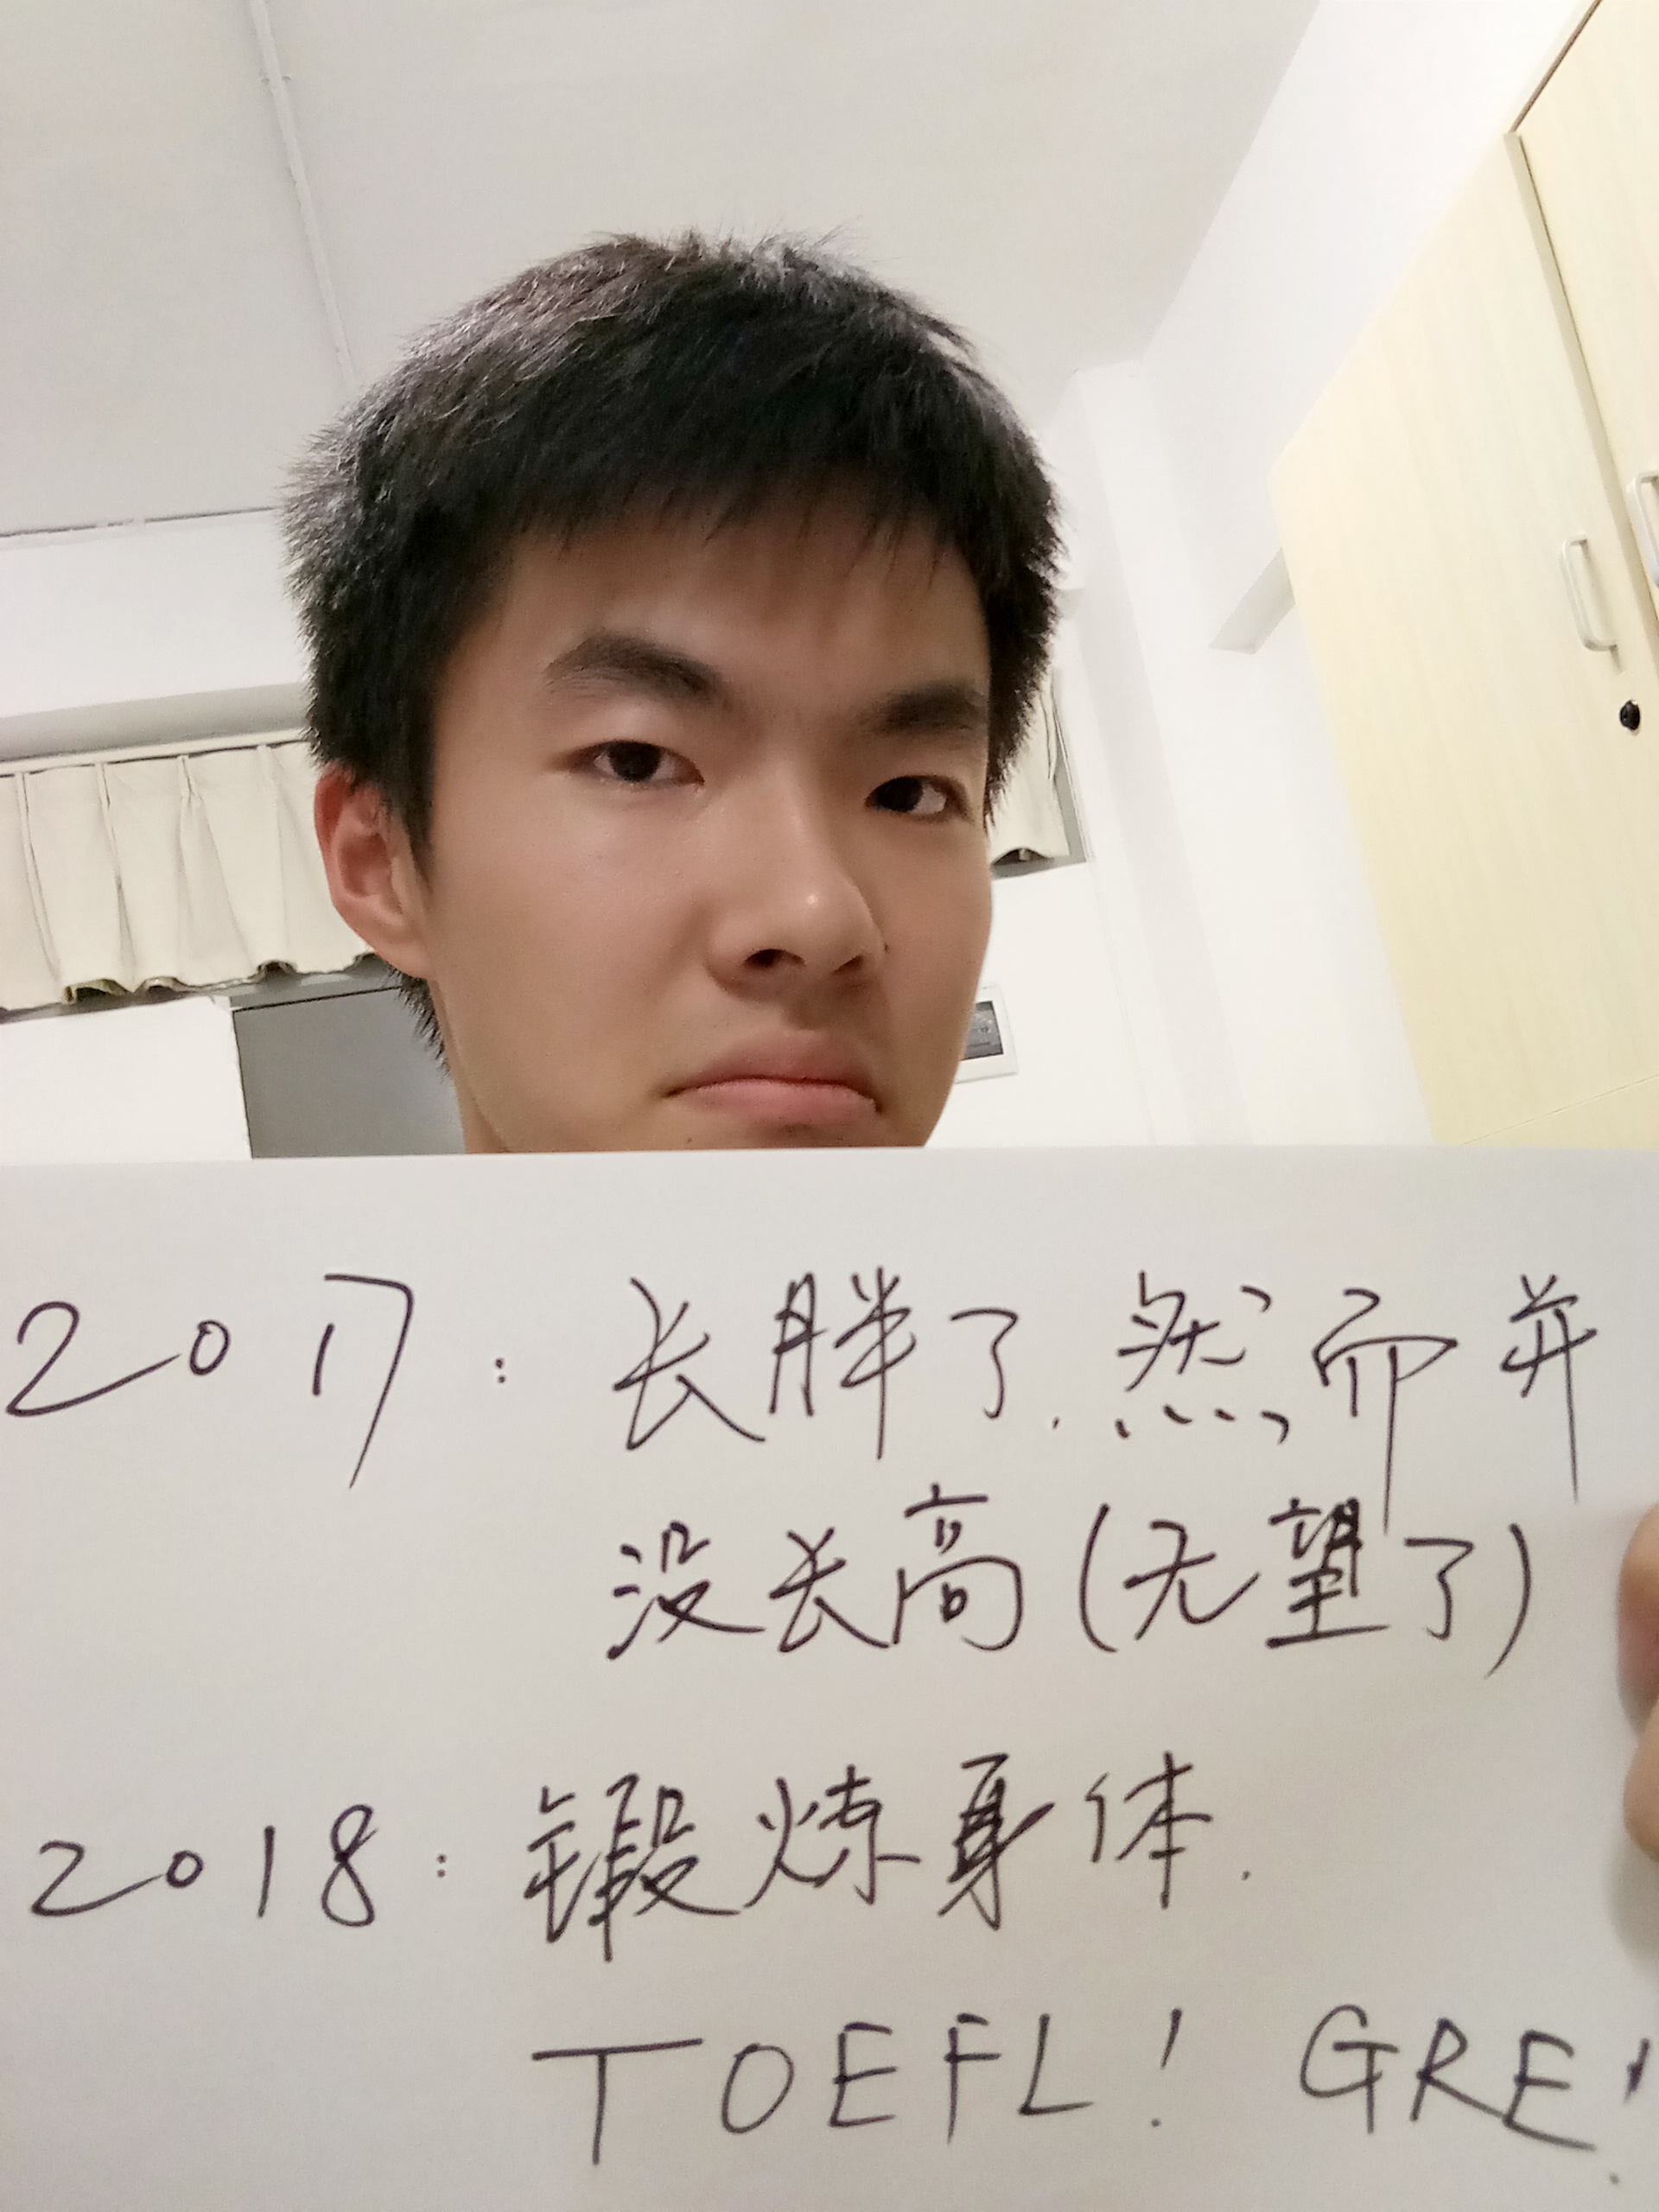 2017：长胖了.然而并
没长高(无望了)
2018：锻炼身体.
TOEFL! GRE!